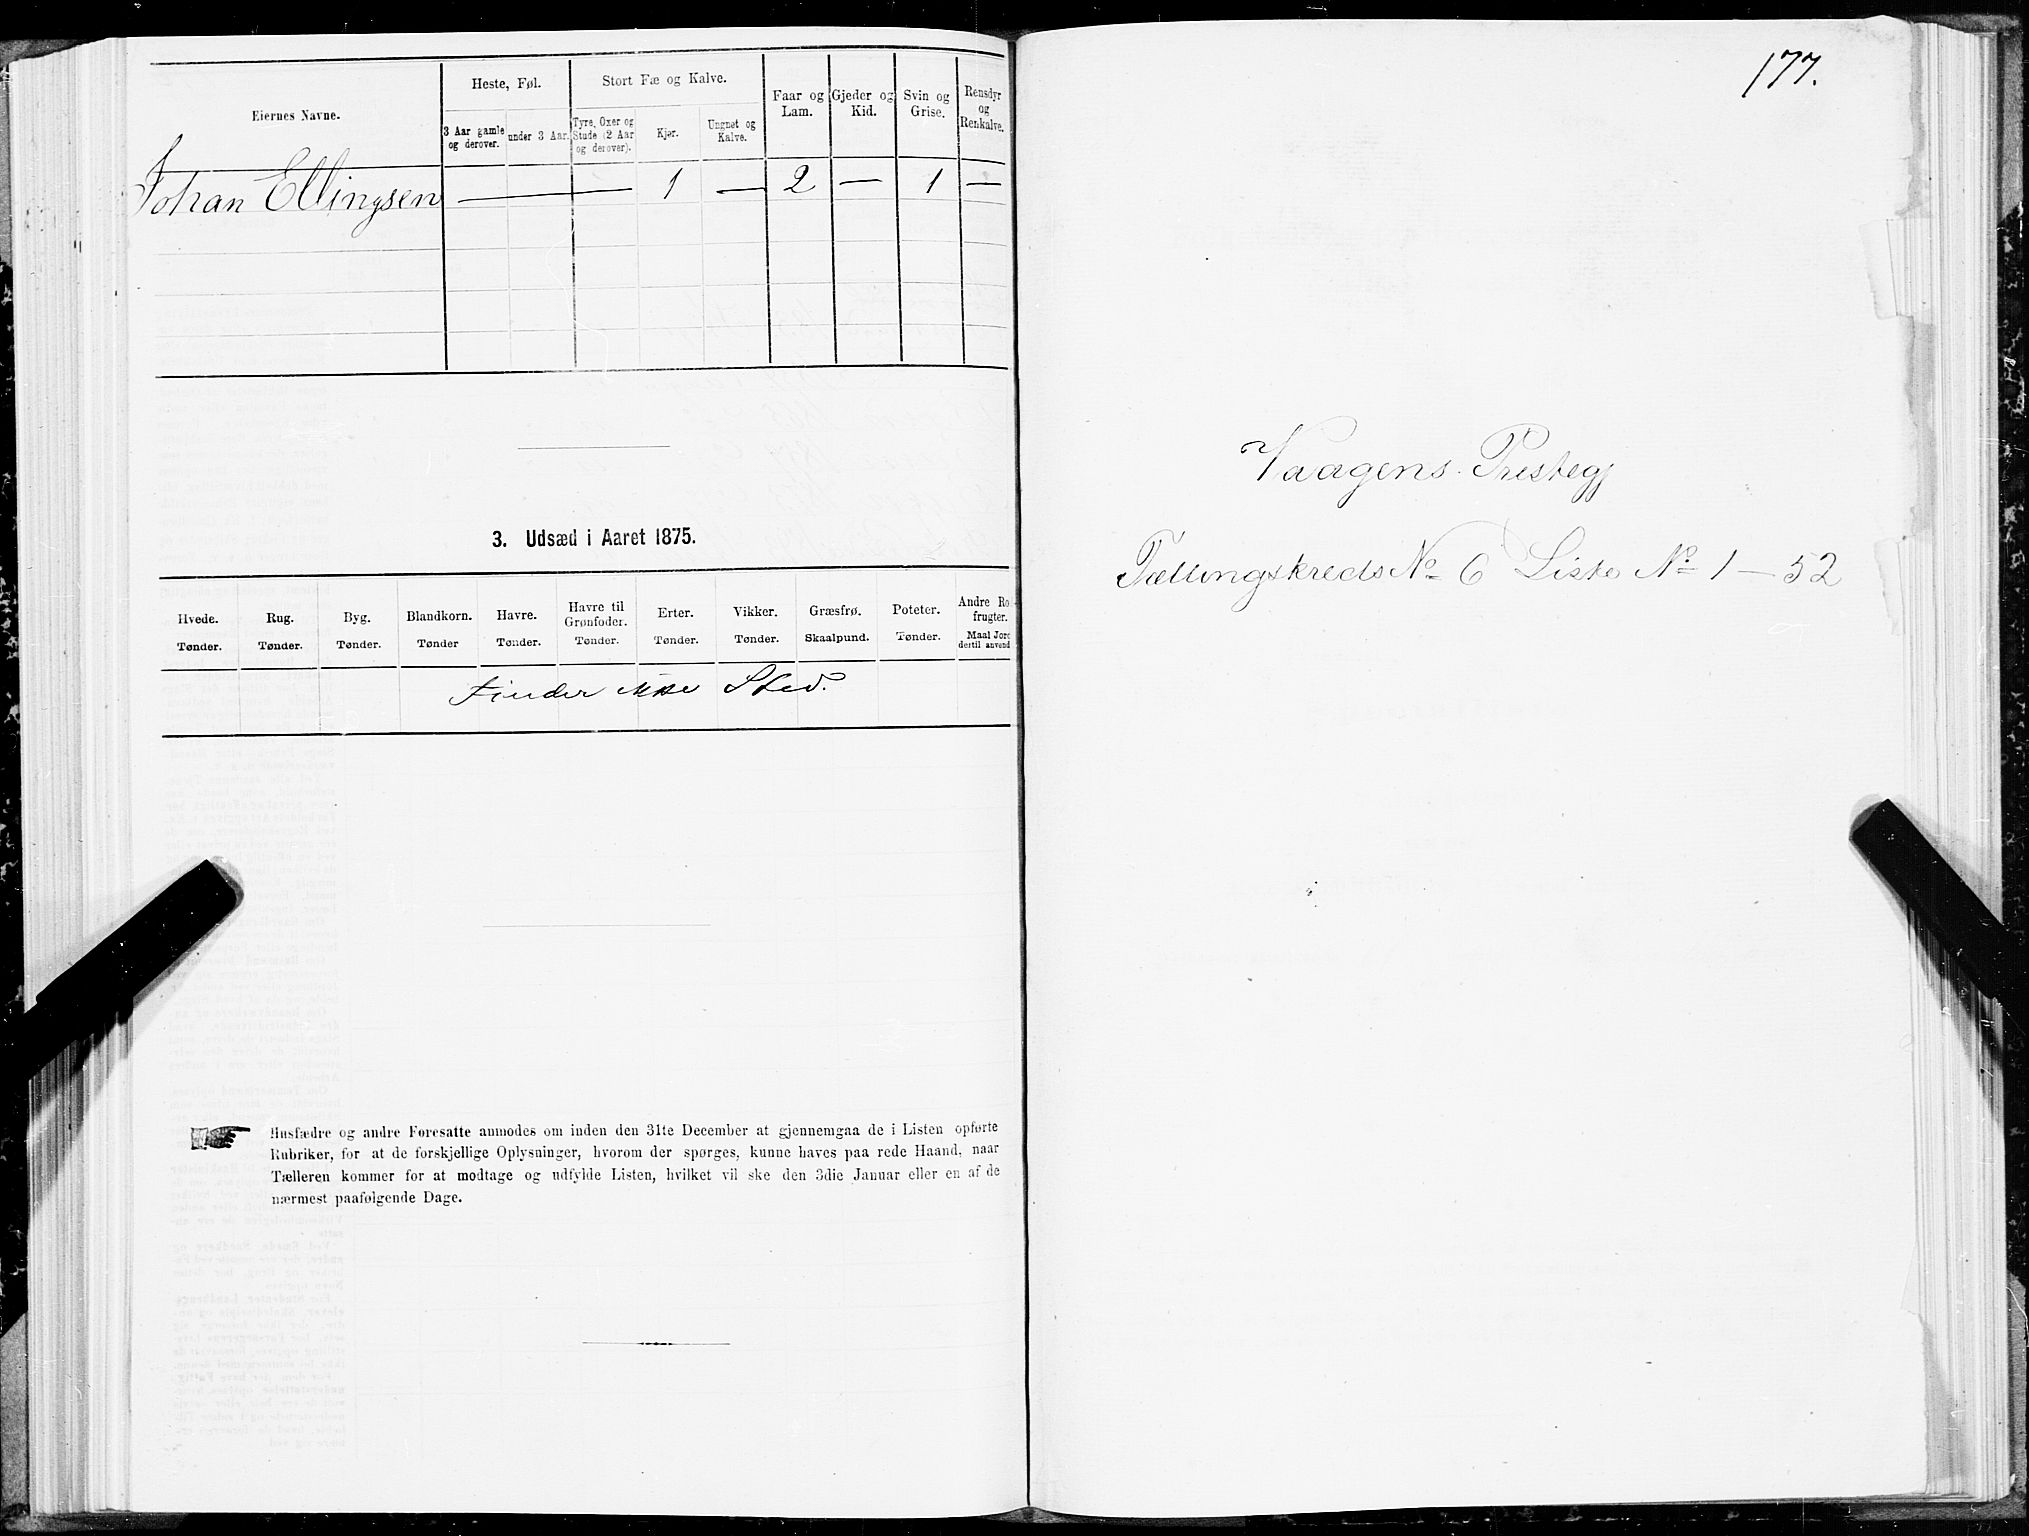 Eiernes Navne.
Heste, Føl.
Stort Fæ og Kalve.
Faar og Lam.
Gjeder og Kid.
Svin og Grise.
Rensdyr og Renkalve.
3 Aar gamle og derover.
under 3 Aar.
Tyre, Oxer og Stude (2 Aar og derover).
Kjør.
Ungnøt og Kalve.
Johan Ellingsen — 1 — 2 — 1 —
3. Udsæd i Aaret 1875.
Hvede. Rug. Byg. Blandkorn. Havre. Havre til Grønfoder. Erter. Vikker. Græsfrø. Poteter. Andre Ro frugter.
Tønder. Tønder. Tønder. Tønder Tønder. Tønder. Tønder. Tønder. Skaalpund. Tønder. Maal Jord dertil anvend
Finder ikke Sted.
Husfædre og andre Foresatte anmodes om inden den 31te December at gjennemgaa de i Listen opførte
Rubriker, for at de forskjellige Oplysninger, hvorom der spørges, kunne haves paa rede Haand, naar
Tælleren kommer for at modtage og udfylde Listen, hvilket vil ske den 3die Januar eller en af de
nærmest paafølgende Dage.
177.
Vaagens Prestegj
Tællingskreds No 6 Liste No 1 — 52